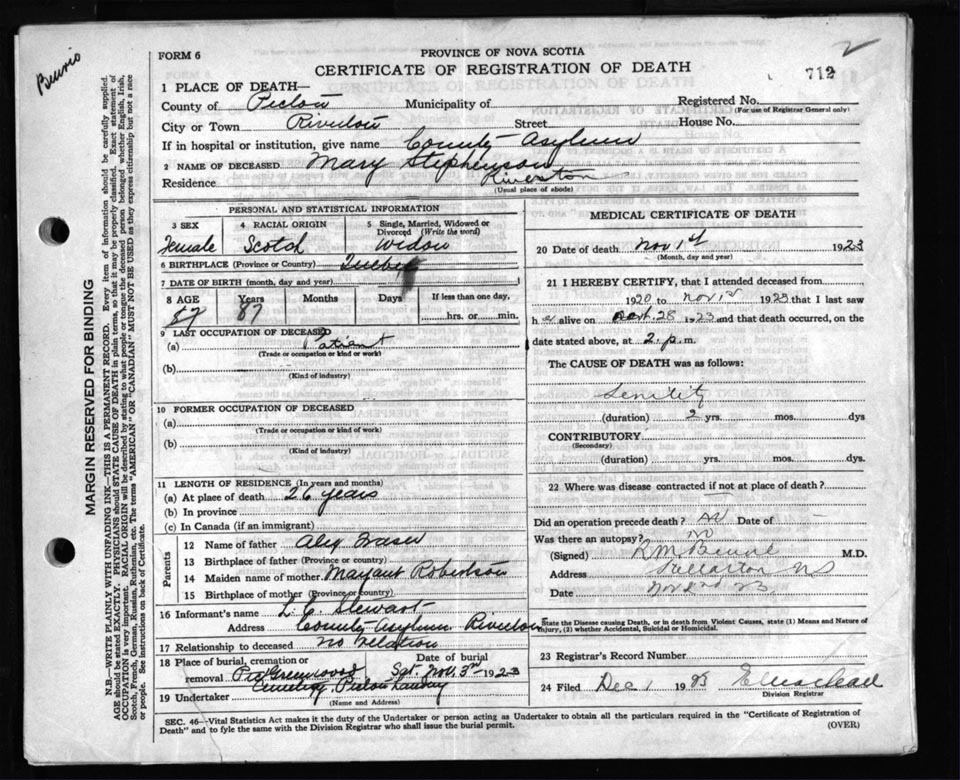 FORM 6
PROVINCE OF NOVA SCOTIA
CERTIFICATE OF REGISTRATION OF DEATH
2
712
1 PLACE OF DEATH—
County of Pictou Municipality of Registered No.
(For use of Registrar General only)
City or Town Riverton Street House No.
If in hospital or institution, give name County Asylum
2 NAME OF DECEASED Mary Stephenson
Residence Riverton
(Usual place of abode)
PERSONAL AND STATISTICAL INFORMATION
3 SEX 4 RACIAL ORIGIN 5 Single, Married, Widowed or Divorced (Write the word)
Female Scotch Widow
6 BIRTHPLACE (Province or Country) Quebec
7 DATE OF BIRTH (month, day and year)
8 AGE Years Months Days If less than one day,
87 87 hrs. or min.
9 LAST OCCUPATION OF DECEASED
(a) Patient
(Trade or occupation or kind of work)
(b)
(Kind of industry)
10 FORMER OCCUPATION OF DECEASED
(a)
(Trade or occupation or kind of work)
(b)
(Kind of industry)
11 LENGTH OF RESIDENCE (In years and months)
(a) At place of death 26 years
(b) In province
(c) In Canada (if an immigrant)
Parents
12 Name of father Alex Fraser
13 Birthplace of father (Province or country)
14 Maiden name of mother Margaret Robertson
15 Birthplace of mother (Province or country)
16 Informant's name L. C. Stewart
Address County Asylum Riverton
17 Relationship to deceased no relation
18 Place of burial, cremation or Date of burial
removal Nov. 3rd 1923
Cemetery, Pictou Landing
19 Undertaker
(Name and Address)
MEDICAL CERTIFICATE OF DEATH
20 Date of death Nov 1st 1923
(Month, day and year)
21 I HEREBY CERTIFY, that I attended deceased from
1920 to Nov 1st 1923 that I last saw
h er alive on Oct. 28 1923 and that death occurred, on the
date stated above, at 2. p. m.
The CAUSE OF DEATH was as follows:
Senility
(duration) 2 yrs. mos. dys
CONTRIBUTORY
(Secondary)
(duration) yrs. mos. dys.
22 Where was disease contracted if not at place of death?
Did an operation precede death? no Date of
Was there an autopsy? no
(Signed) R M Benvie M.D.
Address Stellarton NS
Date Nov 2nd 23
State the Disease causing Death, or in death from Violent Causes, state (1) Means and Nature of
Injury, (2) whether Accidental, Suicidal or Homicidal.
23 Registrar's Record Number
24 Filed Dec 1 1923
Division Registrar
SEC. 46—Vital Statistics Act makes it the duty of the Undertaker or person acting as Undertaker to obtain all the particulars required in the "Certificate of Registration of
Death" and to fyle the same with the Division Registrar who shall issue the burial permit.
(OVER)
Benvie
MARGIN RESERVED FOR BINDING
N.B.—WRITE PLAINLY WITH UNFADING INK—THIS IS A PERMANENT RECORD. Every item of information should be carefully supplied.
AGE should be stated EXACTLY. PHYSICIANS should STATE CAUSE OF DEATH in plain terms, so that it may be properly classified. Exact statement of
OCCUPATION is very important. RACIAL ORIGIN will be described by stating to what people or tongue the deceased person belonged whether English, Irish,
Scotch, French, German, Russian, Ruthenian, etc. The terms "AMERICAN" OR "CANADIAN" MUST NOT BE USED as they express citizenship but not a race
or people. See instructions on back of Certificate.